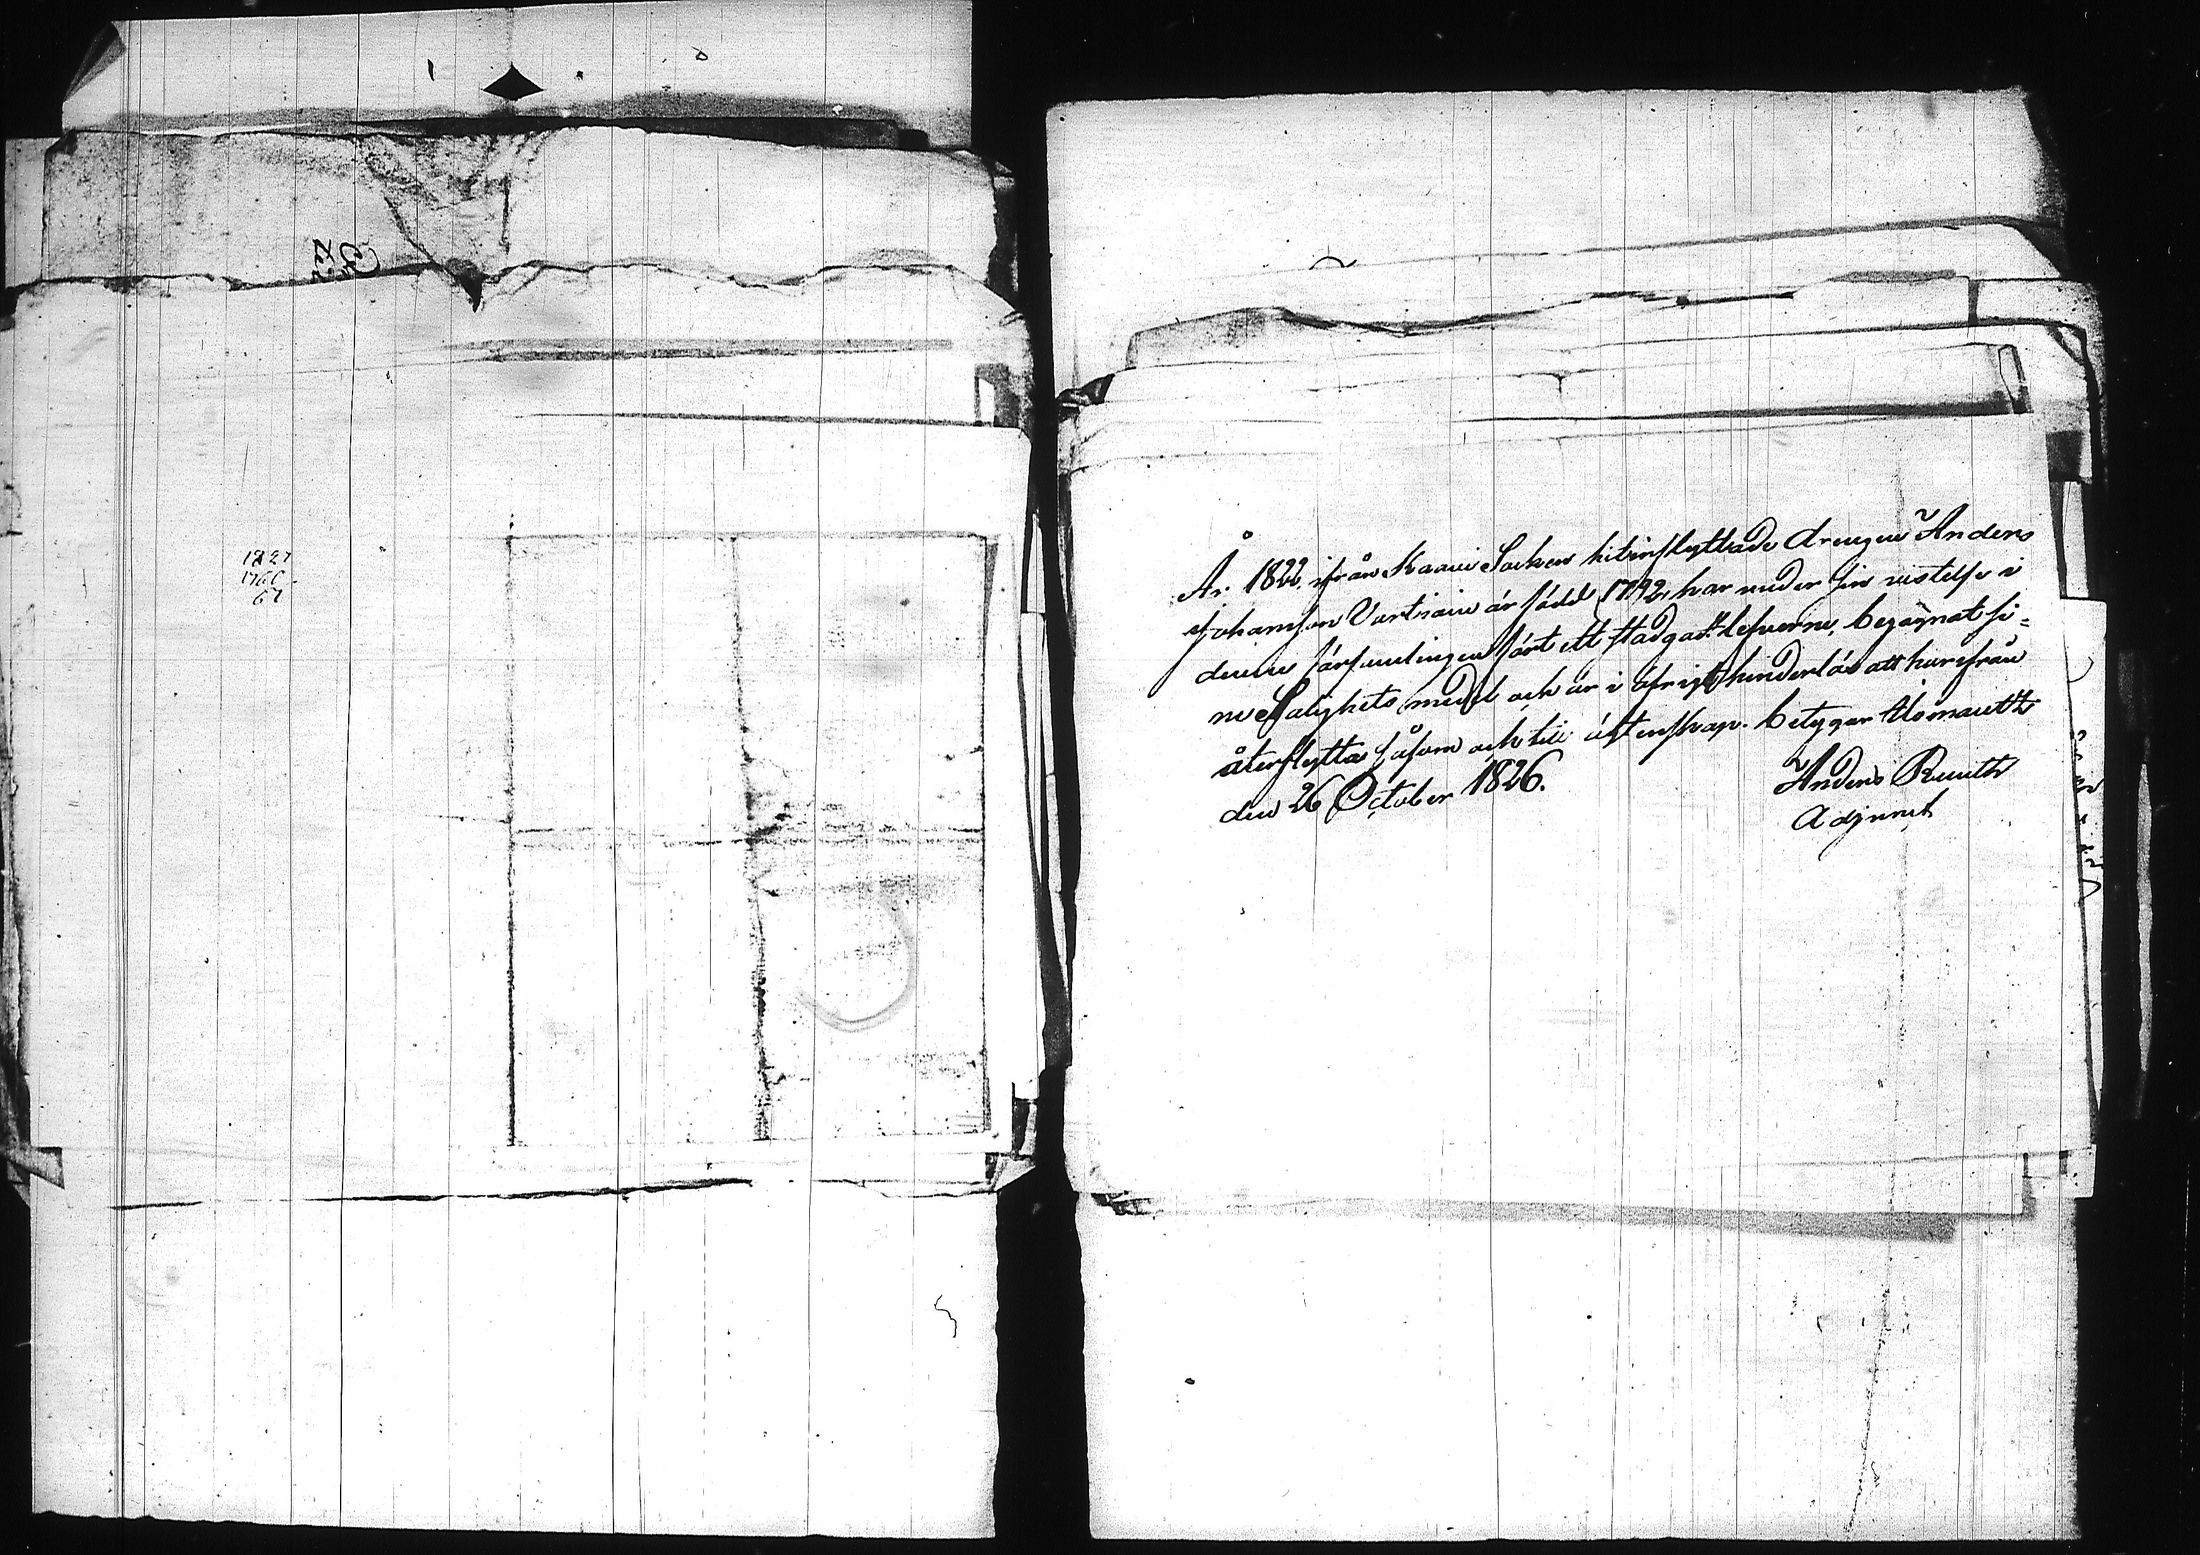 1827
1760
67
År 1822, ifrån Kaavi Socken hitinflyttade drengen Anders
Johansson Vartiain är född 1792, har under sin vistelse i
denne församlingen fört ett stadgadt lefverne, begagnat si-
ne Salighets medel och är i öfrigt hinderlös att härifrån
återflytta såsom och till ägtenskap. betygar Idomantz
den 26 October 1826.
Anders
Adjunct